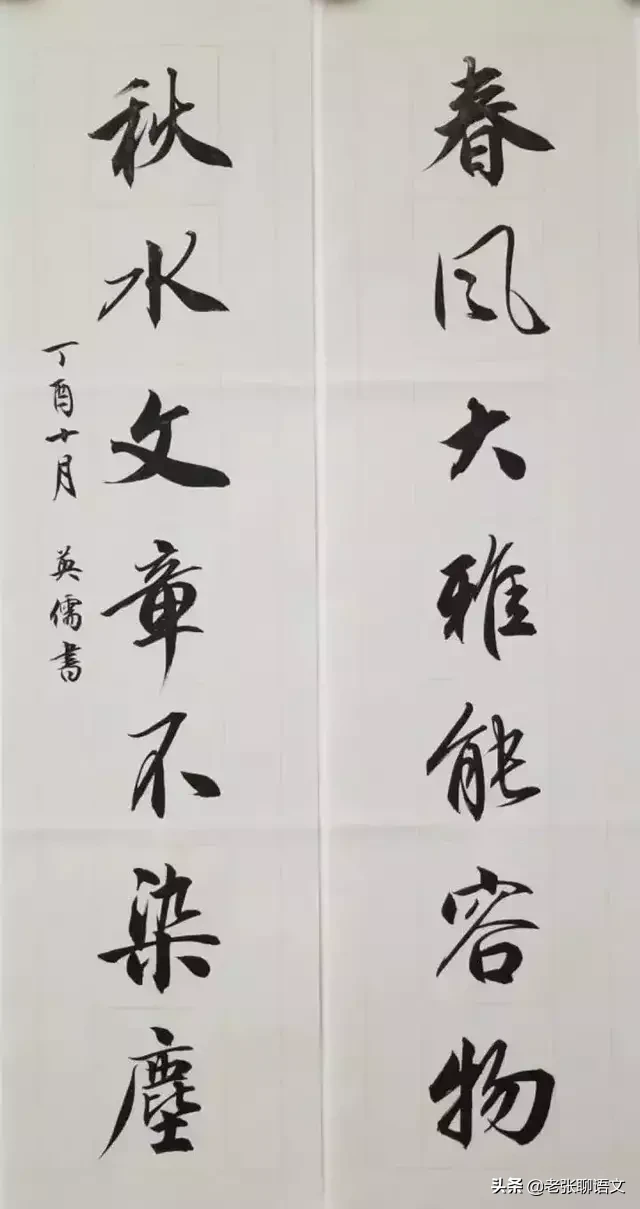 春风大雅能容物
秋水文章不染塵
丁酉十月 英儒書
头条 @老张聊语文